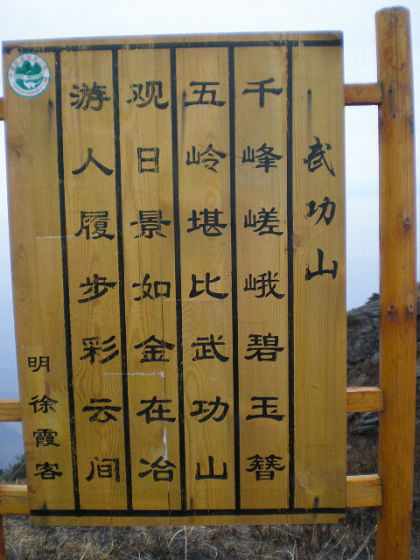 武功山
千峰嵯峨碧玉簪
五岭堪比武功山
观日景如金在冶
游人履步彩云间
明徐霞客